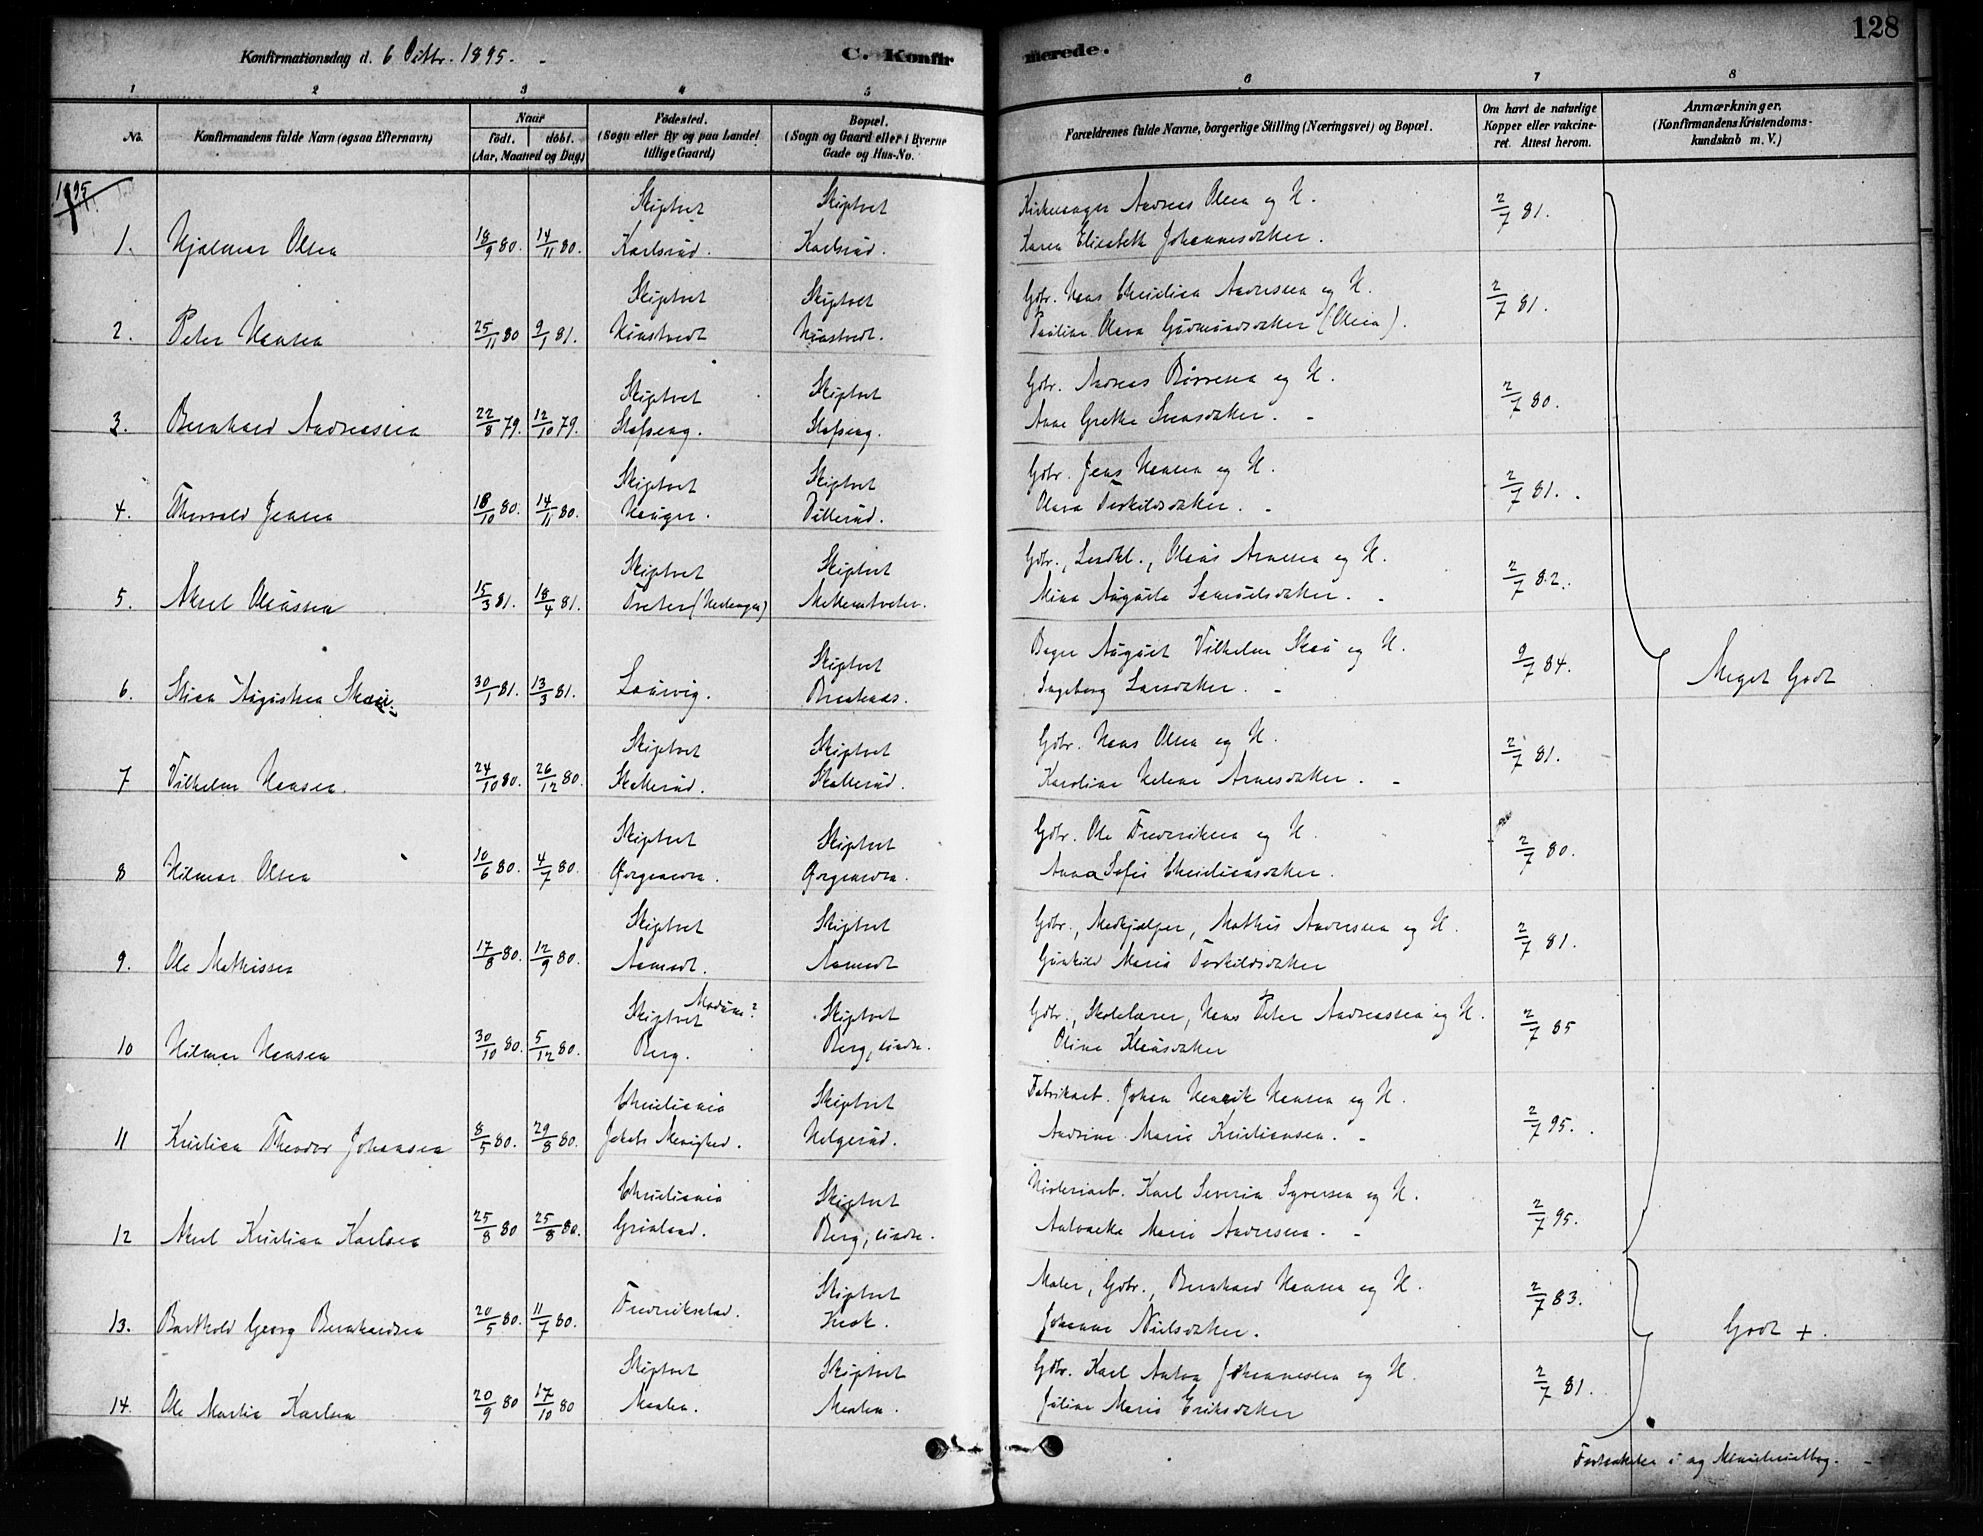 128
Konfirmationsdag d. 6 Octbr. 1895. C. Konfirmerede.
1 2 3 4 5 6 7 8
No.
Konfirmandens fulde Navn (ogsaa Efternavn)
Naar
födt. döbt.
(Aar, Maaned og Dag)
Födested.
(Sogn eller By og paa Landet
tillige Gaard)
Bopæl.
(Sogn og Gaard eller i Byerne
Gade og Hus-No.
Forældrenes fulde Navne, borgerlige Stilling (Næringsvei) og Bopæl.
Om havt de naturlige
Kopper eller vakcine-
ret. Attest herom.
Anmærkninger.
(Konfirmandens Kristendoms-
kundskab m. V.)
1895
Skiptvet Skiptvet Kirkesanger Andreas Olsen og H. 2/7 81.
1. Hjalmar Olsen 18/9 80. 14/11 80. Karlsrud. Karlsrud. Karen Elisabeth Johannesdatter.
Skiptvet Skiptvet Gdbr. Hans Christian Andersen og H. 2/7 81.
2. Peter Hansen 25/11 80 9/1 81. Pauline Olava Gudmundsdatter (Olsen).
Skiptvet Skiptvet Gdbr. Andreas Börresen og H. 2/7 80.
3. Bernhard Andreassen 22/8 79. 12/10 79. Anne Grethe Svensdatter.
Skiptvet Skiptvet Gdbr. Jens Hansen og H. 2/7 81.
4. Thorvald Jensen 18/10 80. 14/11 80. Hauger. Villerud. Olava Torkildsdatter.
Skiptvet Skiptvet Gdbr., Olaus Arnesen og H. 2/7 82.
5. Aksel Olaussen 15/3 81. 18/4 81. Mellemtveter. Mina Augusta Samuelsdatter.
Skiptvet Bager August Vilhelm Skau og H. 9/7 84.
6. Augusta Skau. 30/1 81. 13/3 81. Laurvig. Ingeborg Larsdatter.
Meget Godt
Skiptvet Skiptvet Gdbr. Hans Olsen og H. 2/7 81.
7 Vilhelm Hansen. 24/10 80. 26/12 80. Skallerud. Skallerud. Karoline Helene Arnesdatter.
Skiptvet Skiptvet Gdbr. Ole Fredriksen og H. 2/7 80.
8 Hilmar Olsen 10/6 80. 4/7 80. Anna Sofie Christiansdatter.
Skiptvet Skiptvet Gdbr., Medhjælper, Mathis Andersen og H. 2/7 81.
9. Ole Mathissen 17/8 80. 12/9 80. Aamodt. Aamodt Gunhild Maria Torkildsdatter
Skiptvet Modum? Skiptvet Gdbr., Skolelærer, Hans Peter Andreassen og H. 2/7 85
10 Hilmar Hansen 30/10 80. 5/12 80. Berg. Berg, søndre. Oline Klausdatter
Christiania Skiptvet Fabrikarb. Johan Henrik Hansen og H. 2/7 95.
11 Kristian Theodor Johansen 8/5 80. 29/8 80. Jakobs Menighed. Helgerud. Andrine Marie Kristiansen.
Christiania Skiptvet Karl Severin Syversen og H. 2/7 95.
12 Aksel Kristian Karlsen 25/8 80 25/8 80. Grønland. Berg, søndre. Marie Andersen.
Fredrikstad. Skiptvet Maler, Gdbr., Bernhard Hansen og H. 2/7 83.
13. Barthold Georg Bernhardsen 20/5 80. 11/7 80. Johanne Nielsdatter.
Godt +.
Skiptvet Skiptvet Gdbr. Karl Anton Johannessen og H. 2/7 81.
14. Ole Martin Karlsen 20/9 80 17/10 80 Maalen. Maalen. Juline Maria Eriksdatter
Fortsættelse i ny Ministerialbog.